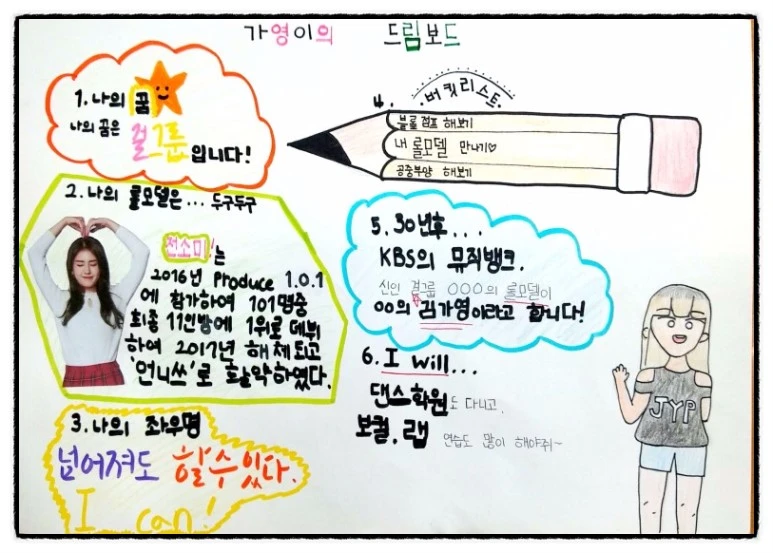 가영이의 드림보드
1. 나의 꿈
나의 꿈은 걸그룹입니다!
2. 나의 롤모델은... 두구두구
전소미는
2016년 Produce 1.0.1
에 참가하여 101명중
최종 11인방에 1위로 데뷔
하여 2017년 해체되고
'언니쓰'로 활약하였다.
3. 나의 좌우명
넘어져도 할수있다.
I can!
4. 버킷리스트
블롭점프 해보기
내 롤모델 만나기♡
공중부양 해보기
5. 30년후...
KBS의 뮤직뱅크.
신인 걸그룹 OOO의 롤모델이
OO의 김가영이라고 합니다!
6. I will...
댄스학원도 다니고,
보컬, 랩 연습도 많이 해야쥐~
JYP